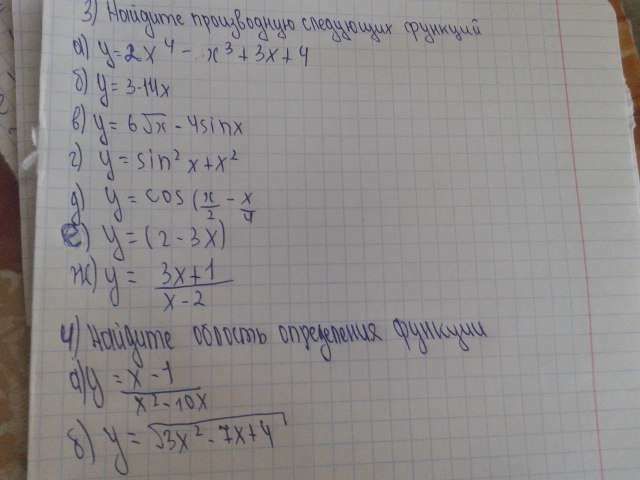 3) Найдите производную следующих функций
а) y=2x⁴ - x³+3x+4
б) y=3-14x
в) y=6√x-4sinx
г) y=sin²x+x²
д) y=cos(x/2 - x/4
е) y=(2-3x)
ж) y= (3x+1)/(x-2)
4) Найдите область определения функции
а) y = (x-1)/(x²-10x)
б) y=√3x²-7x+4